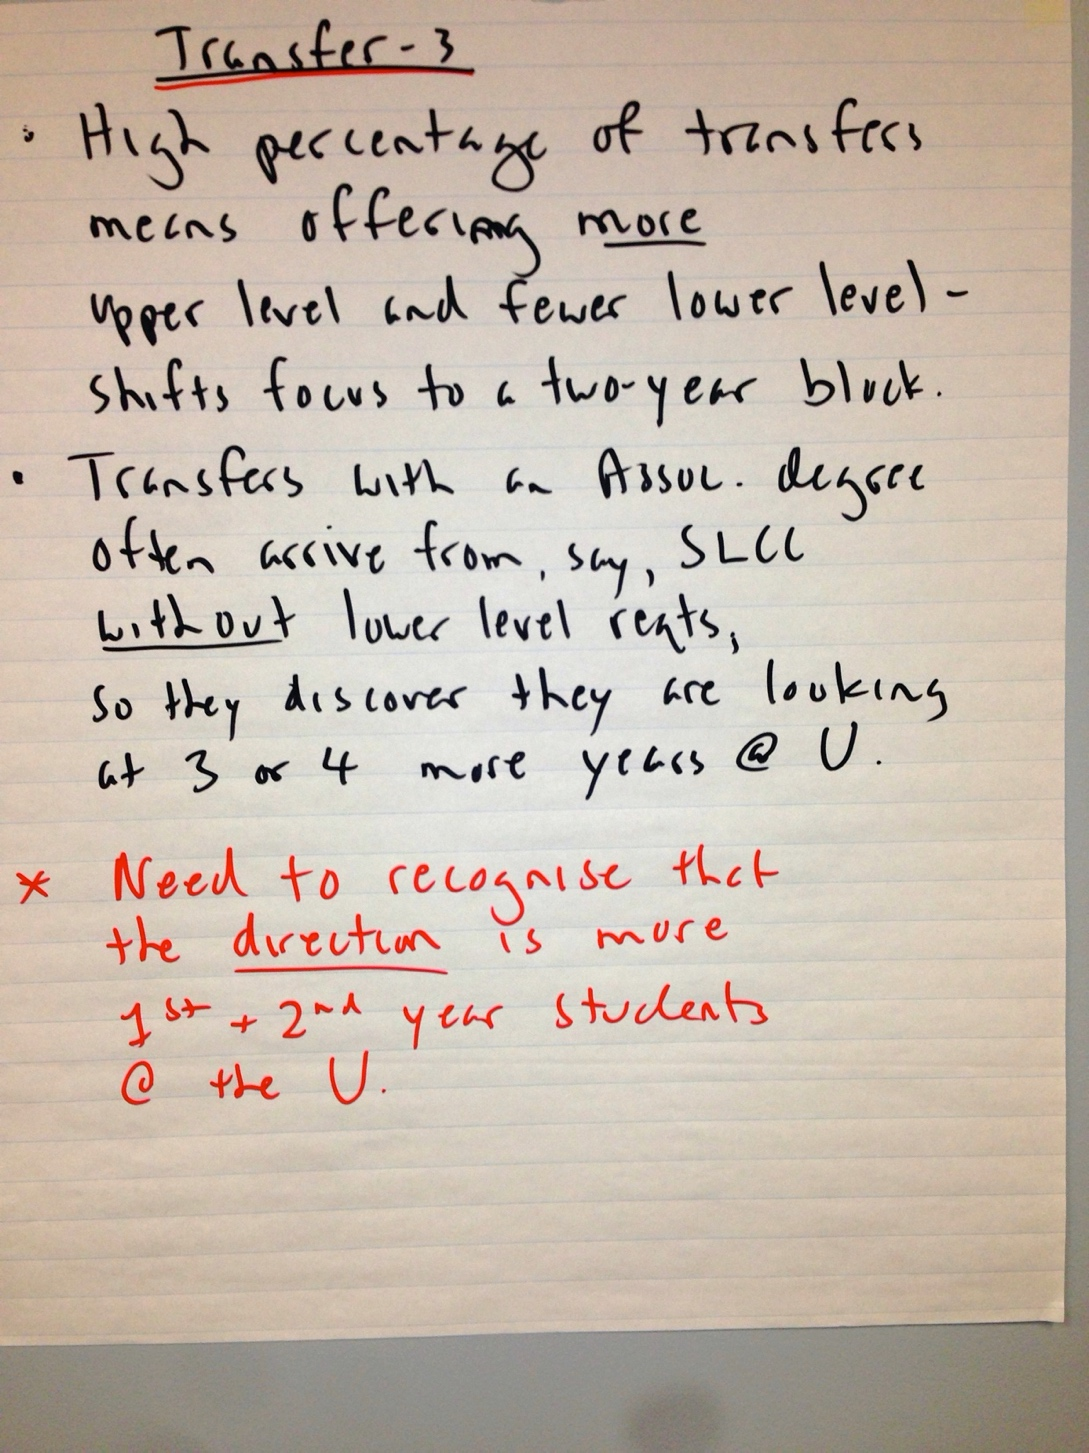 Transfer-3
• High percentage of transfers
means offering more
upper level and fewer lower level -
shifts focus to a two-year block.
• Transfers with an Assoc. degree
often arrive from, say, SLCC
without lower level reqts,
so they discover they are looking
at 3 or 4 more years @ U.
* Need to recognise that
the direction is more
1st + 2nd year students
@ the U.